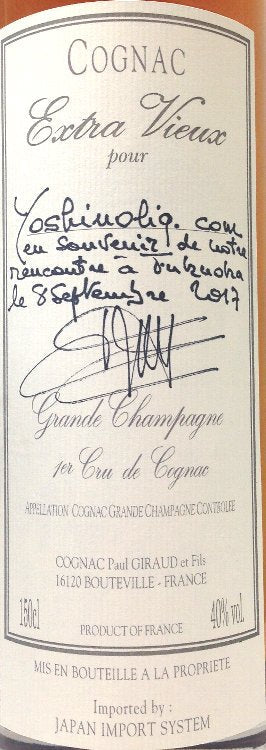 COGNAC
Extra Vieux
pour
Yoshinoliq. com
en souvenir de notre
rencontre à
le 8 Septembre 2017
Grande Champagne
1er Cru de Cognac
APPELLATION COGNAC GRANDE CHAMPAGNE CONTROLEE
COGNAC Paul GIRAUD et Fils
16120 BOUTEVILLE - FRANCE
150cl
40% vol.
PRODUCT OF FRANCE
MIS EN BOUTEILLE A LA PROPRIETE
Imported by :
JAPAN IMPORT SYSTEM